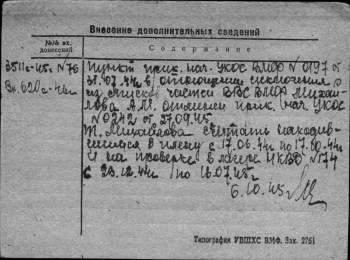 Внесение дополнительных сведений
№№ вх. донесений
Содержание
Пункт прик. нач. УКОС ВМФ № 0197 от
31.07.44г в отношении исключения
из списков части ВВС ВМФ Михай-
лова А.М. отменен прик. нач. УКОС
№ 0242 от 27.09.45
Т. Михайлова считать находив-
шимся в плену с 17.06.44г по 17.
и на проверке в лагере НКВД № 174
с 23.12.44г по 16.07.45г
6.10.45г
Типография УВШХС ВМФ. Зак. 2761